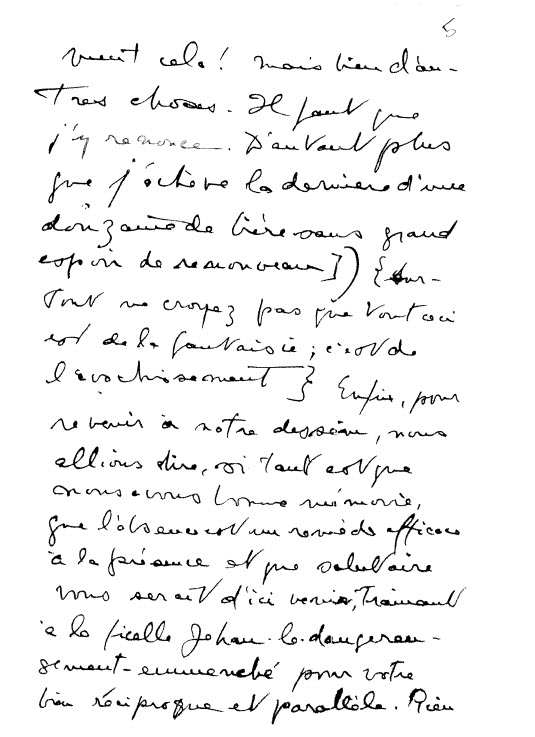 5
vient cela! mais bien d'au-
tres choses. Il faut que
j'y renonce. D'autant plus
que j'achève la dernière d'une
douzaine de bière sans grand
espoir de renouveau]) {Sur-
tout ne croyez pas que tout ceci
est de la fantaisie; c'est de
l'avachissement} Enfin, pour
revenir à notre dessein, nous
allions dire, si tant est que
nous avons bonne mémoire,
que l'absence est un remède efficace
à la présence et que salutaire
vous serait d'ici venir, traînant
à la ficelle Johan-le-dangereu-
sement-emmanché pour votre
bien réciproque et parallèle. Rien